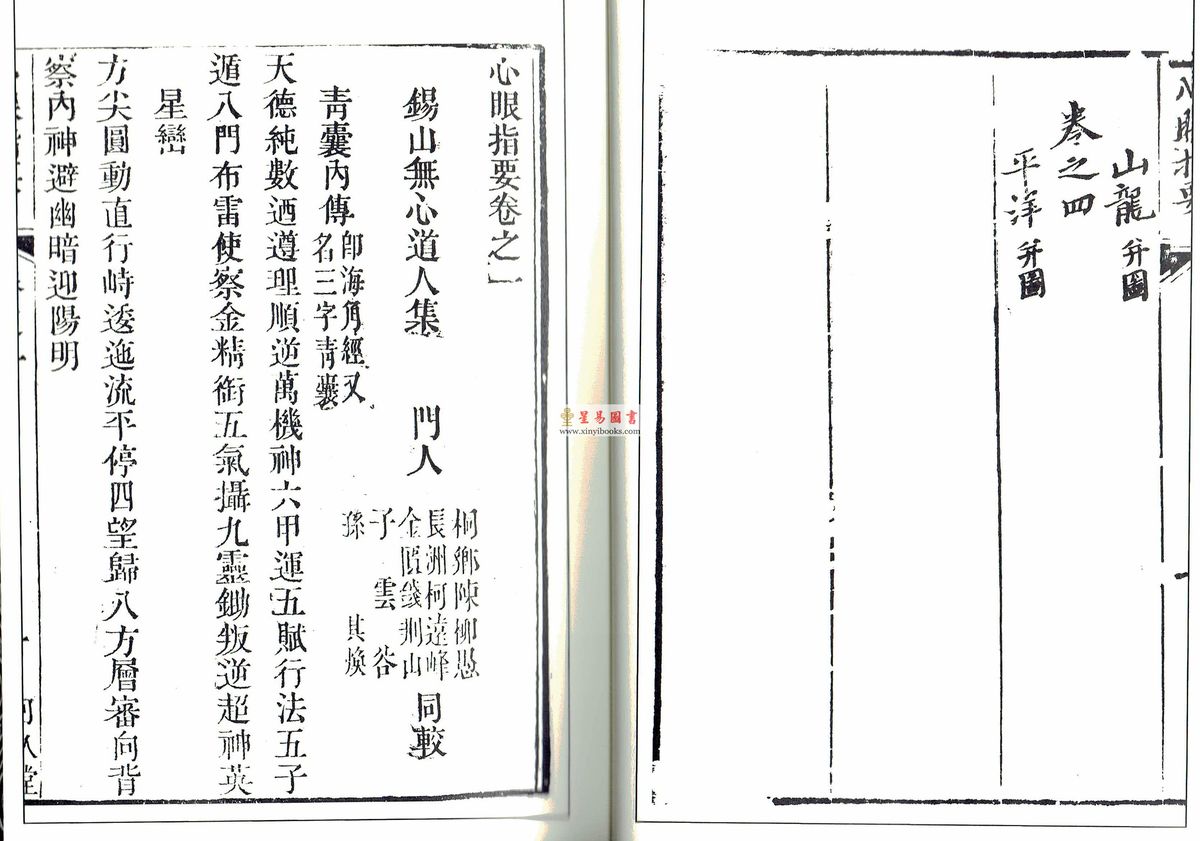 山龍 并圖
卷之四
平洋 并圖
心眼指要卷之一
錫山無心道人集 門人
桐鄉陳柳愚
長洲柯遠峰
金匱錢荆山
子 雲谷
孫 其煥
同較
青囊內傳 卽海角經又名三字青囊
天德純數迺遵理順逆萬機神六甲運五賦行法五子
遁八門布雷使察金精銜五氣攝九靈鋤叛逆超神英
星巒
方尖圓動直行峙逶迤流平停四望歸八方層審向背
察內神避幽暗迎陽明
星易圖書
www.xinyibooks.com